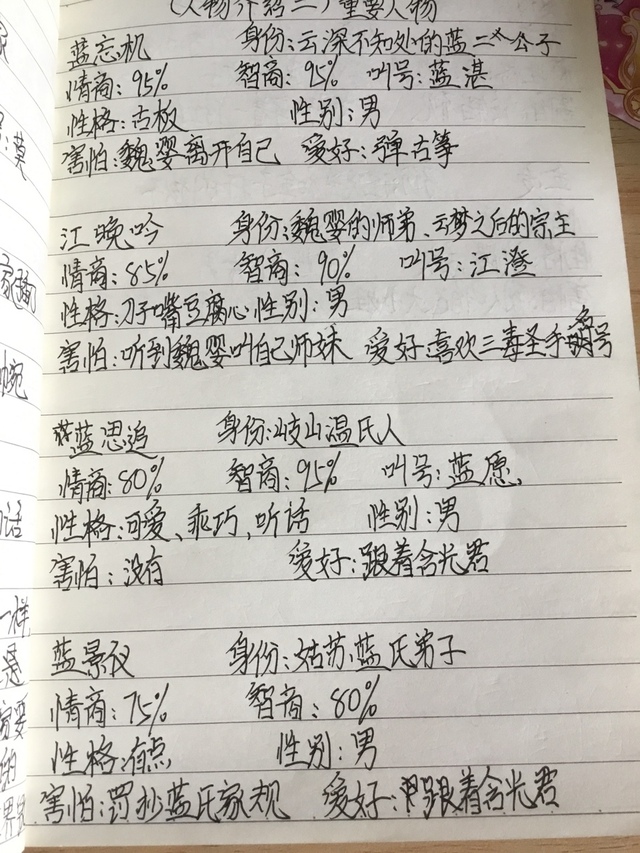 (人物介绍二)重要人物
蓝忘机 身份:云深不知处的蓝二公子
情商:95% 智商:95% 叫号:蓝湛
性格:古板 性别:男
害怕:魏婴离开自己 爱好:弹古筝
江晚吟 身份:魏婴的师弟、云梦之后的宗主
情商:85% 智商:90% 叫号:江澄
性格:刀子嘴豆腐心 性别:男
害怕:听到魏婴叫自己师妹 爱好:喜欢三毒圣手的名号
蓝思追 身份:岐山温氏人
情商:80% 智商:95% 叫号:蓝愿
性格:可爱、乖巧,听话 性别:男
害怕:没有 爱好:跟着含光君
蓝景仪 身份:姑苏蓝氏弟子
情商:75% 智商:80%
性格:有点 性别:男
害怕:罚抄蓝氏家规 爱好:跟着含光君